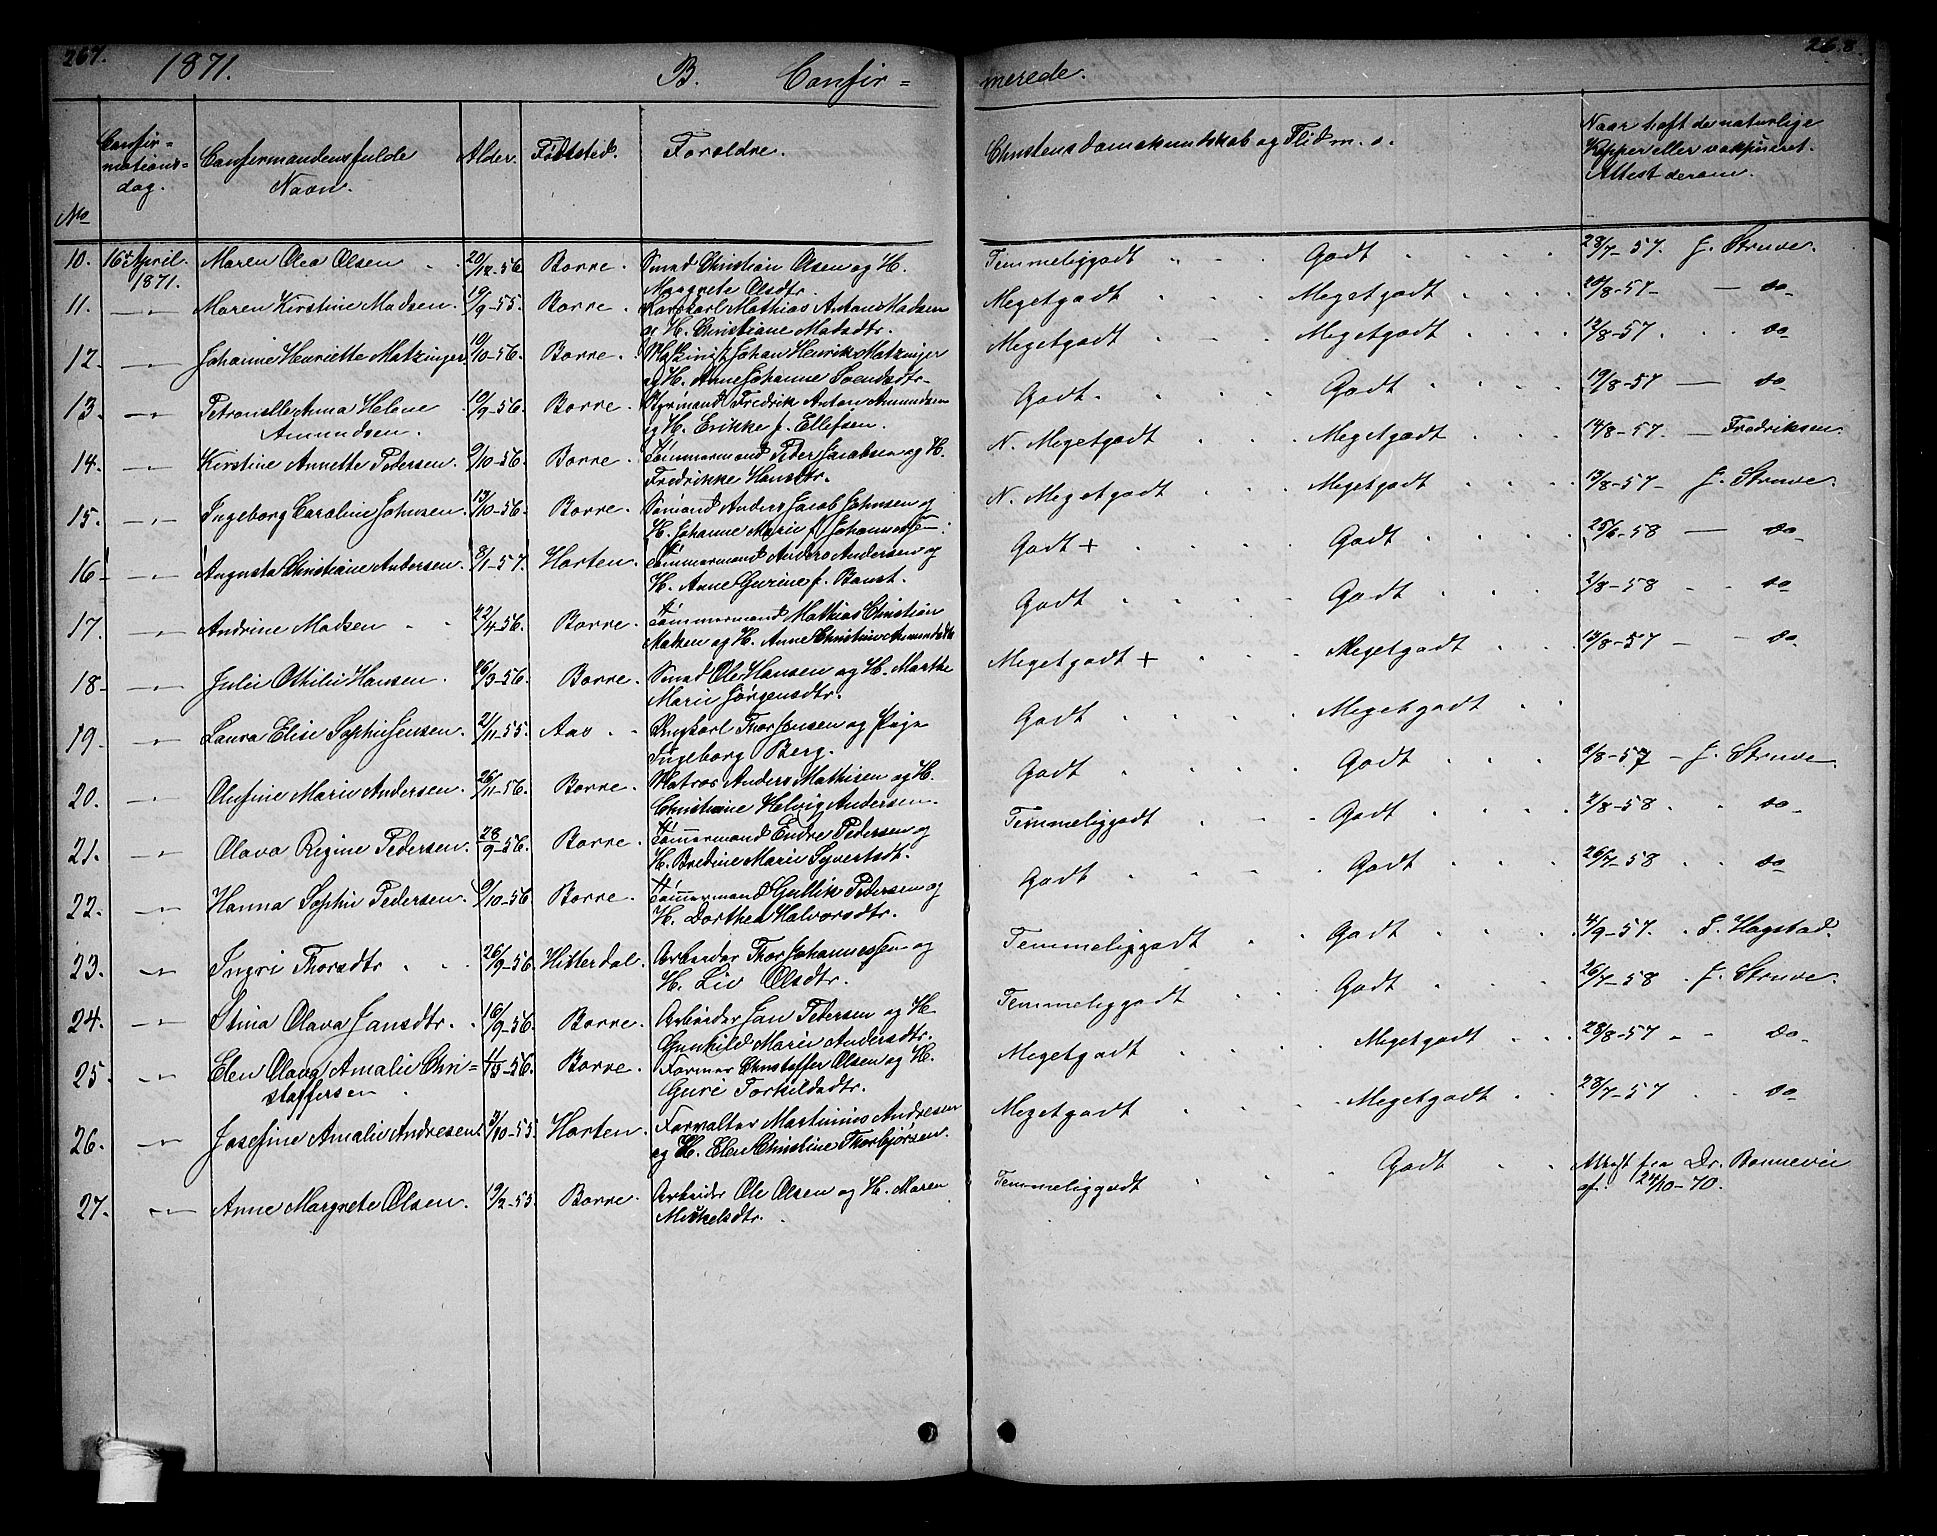 267. 1871. B. Confir=
merede. 268.
No
Confir-
mations-
dag.
Confirmandens fulde
Navn.
Alder.
Födested.
Forældre.
Christendomskundskab og Flid m. v.
Naar haft de naturlige
Kopper eller vakcineret.
Attest derom.
10. 16de April 1871. Maren Olea Olsen 20/12-56 Borre. Smed Christian Olsen og H. Temmeliggodt Godt 28/7-57. J. Struve.
Margrete Olsdtr.
11. —"— Maren Kirstine Madsen. 19/9-55. Borre. Mathias Anton Madsen Megetgodt Megetgodt 20/8-57 — do
og H. Christiane Madsdtr.
12. —"— Johanne Henriette Matzinger. 19/10-56. Borre. Maskinist Johan Henrik Matzinger Megetgodt Megetgodt 12/8-57. do
og H. Anne Johanne Svendsdtr.
13. —"— Petronelle Anna Helene 19/9-56. Borre. Styrmand Fredrik Anton Amundsen Godt. Godt 19/8-57 — do
Amundsen. og H. Erikke f. Ellefsen.
14. —"— Kirstine Annette Pedersen. 9/10-56. Borre. Tömmermand Peder Jacobsen og H. N. Megetgodt Megetgodt 14/8-57. — Fredriksen.
Fredrikke Hansdtr.
15. —"— Ingeborg Caroline Johnsen. 13/10-56. Borre. Sömand Anders Jacob Johnsen og N. Megetgodt Megetgodt 13/8-57 J. Struve.
H. Johanne Marie f.
16 —"— Augusta Christiane Andersen. 8/1-57. Horten. Tömmermand Anders Andersen og Godt + Godt 25/6-58 — do
H. Anne Gurine f.
17. —"— Andrine Madsen 22/4-56. Borre. Tömmermand Mathias Christian Godt Godt 2/8-58 do
Madsen og H. Anne Christine Amundsdtr
18 —"— Julie Othilie Hansen. 26/3-56. Borre. Smed Ole Hansen og H. Marthe Megetgodt + Megetgodt 13/8-57 — do
Marie Jörgensdtr.
19. —"— Laura Elise Sophie Jensen. 2/11-55. Aas Ungkarl Thor Jensen og Pige Godt Megetgodt
Ingeborg Berg.
20. —"— Olufine Marie Andersen. 26/11-56. Borre. Matros Anders Mathisen og H. Godt Godt 9/8-57 — J. Struve
Christiane Helvig Andersen.
21. —"— Olava Regine Pedersen. 28/9-56. Borre. Tömmermand Endre Pedersen og Temmeliggodt Godt 2/8-58 do
H. Bredine Marie Syverstdt.
22. —"— Hanna Sophie Pedersen. 9/10-56 Borre. Tömmermand Gullik Pedersen og Godt Godt 26/7-58 do
H. Dorthea Halvorsdtr.
23. —"— Ingri Thorsdtr 26/9-56. Hitterdal. Arbeider Thor Johannessen og Temmeliggodt Godt 4/9-57. S. Hagstad.
H. Liv Olsdtr.
24. —"— Stina Olava Jansdtr. 16/9-56. Borre. Arbeider Jan Pedersen og H. Temmeliggodt Godt 26/7-58 J. Struve.
Gunhild Marie Andersdtr.
25. —"— Elen Olava Amalie Chri= 11/5-56. Borre. Former Christoffer Olsen og H. Megetgodt Megetgodt 28/8-57 do
stoffersen Guri Torkildsdtr.
26. —"— Josefine Amalie Andresen. 3/10-55. Horten. Forvalter Martinius Andresen Megetgodt Megetgodt 28/7-57 do
og H. Elen Christine Thorbjörsen.
27. —"— Anne Margrete Olsen. 19/2-55. Borre. Arbeider Ole Olsen og H. Maren Temmeliggodt Godt Attest fra Dr. Bonnevie
Mickelsdtr. af. 24/10-70.